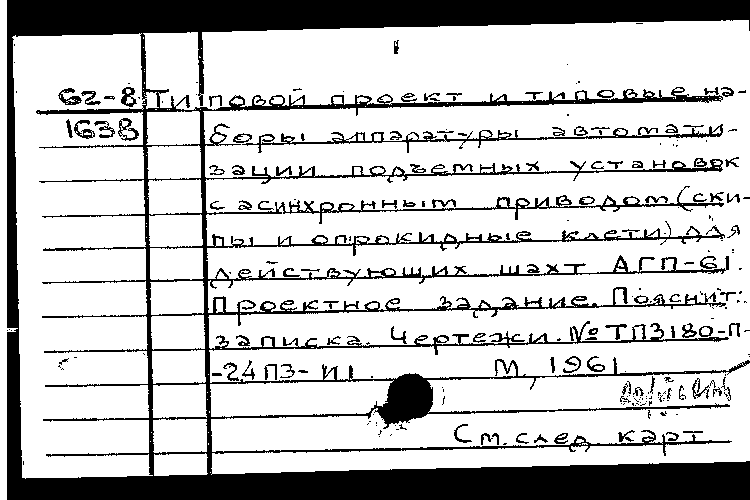 1
62-8 Типовой проект и типовые на-
1638 боры аппаратуры автомати-
зации подъемных установок
с асинхронным приводом (ски-
пы и опрокидные клети) для
действующих шахт АГП-61.
Проектное задание. Пояснит.
записка. Чертежи. № ТП3180-П-
-24ПЗ-И1. М., 1961
См. след. карт.